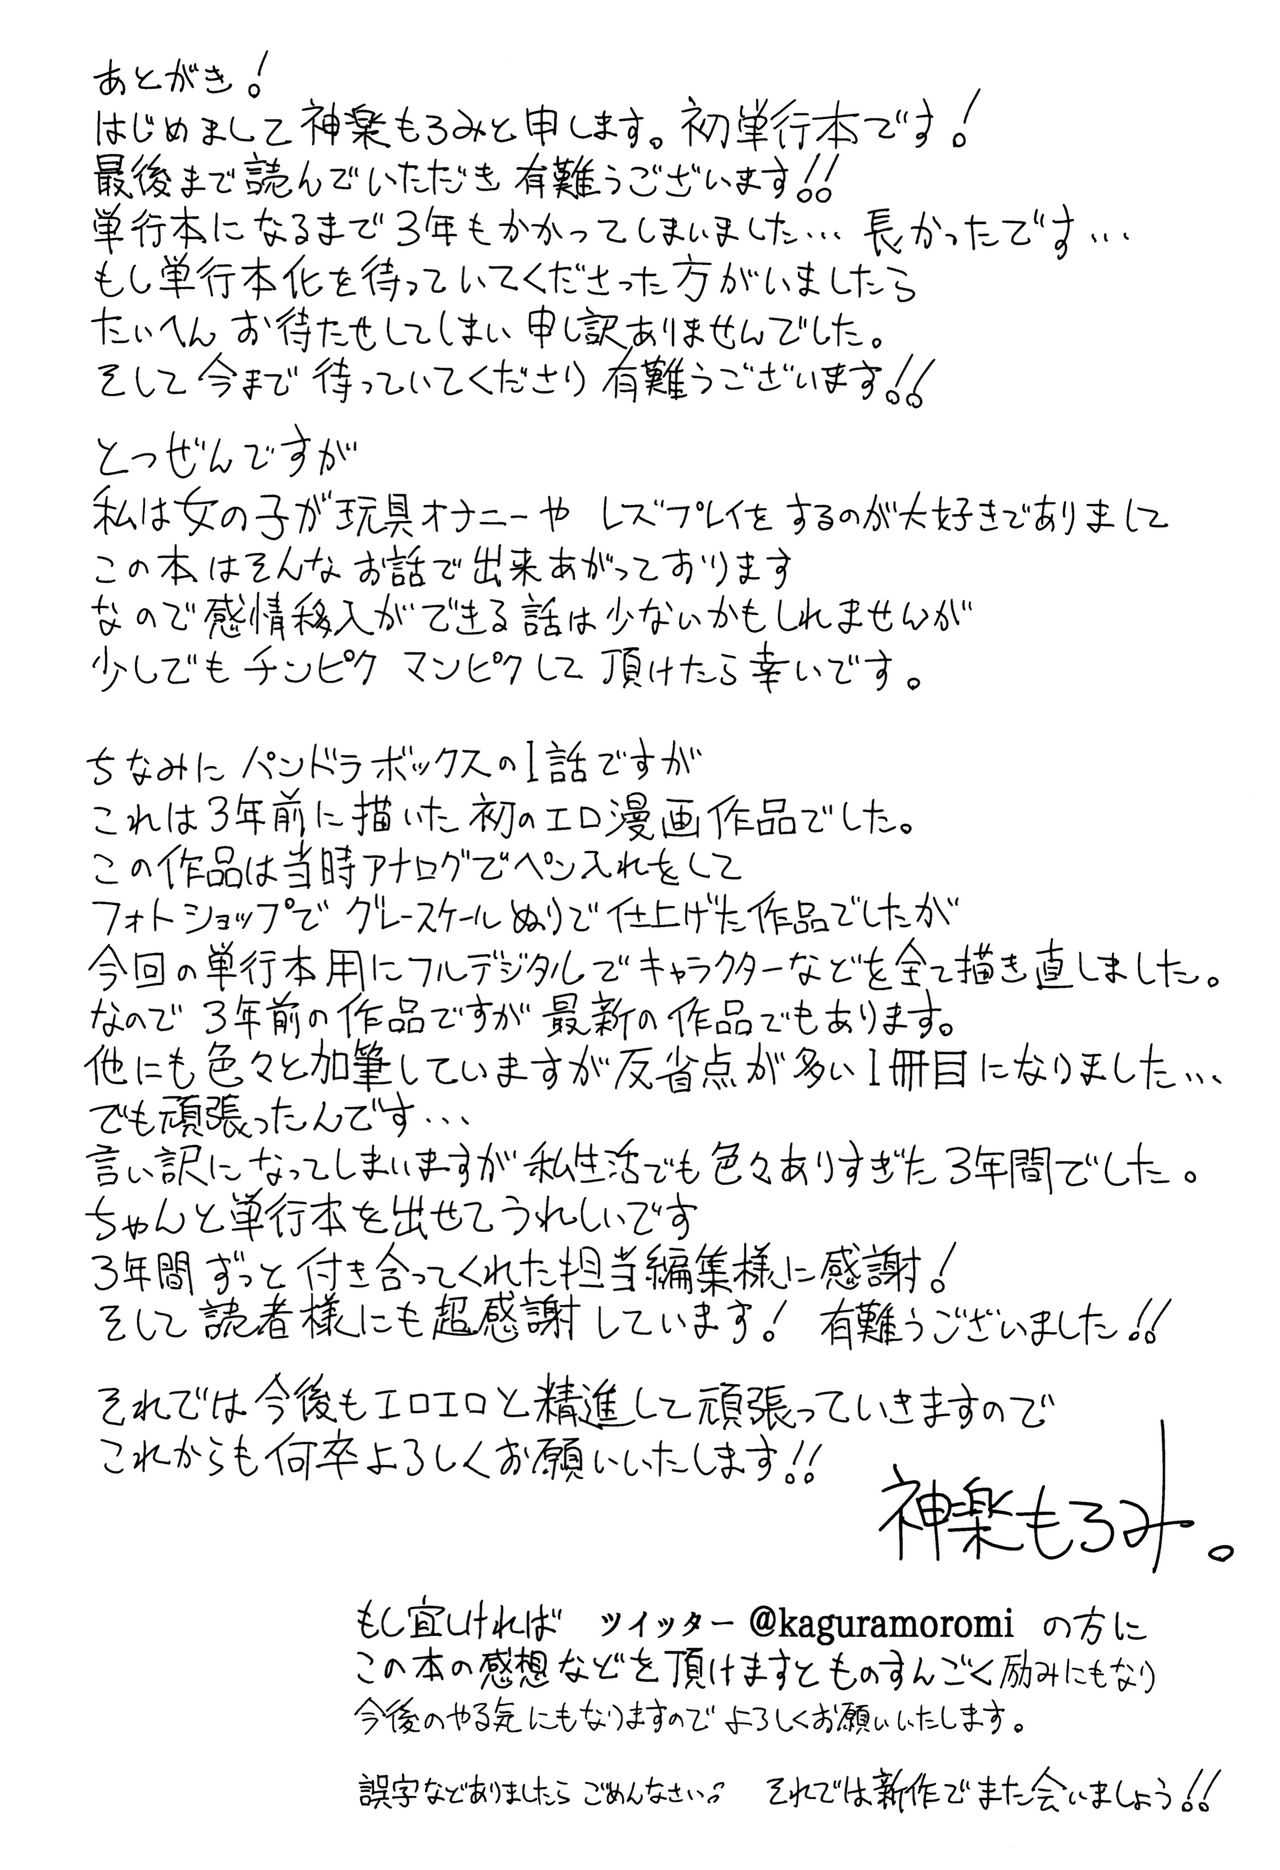 あとがき!
はじめまして神楽もろみと申します。初単行本です!
最後まで読んでいただき 有難うございます!!
単行本になるまで3年もかかってしまいました… 長かったです…
もし単行本化を待っていてくださった方がいましたら
たいへん お待たせしてしまい 申し訳ありませんでした。
そして今まで 待っていてくださり 有難うございます!!
とつぜんですが
私は女の子が玩具オナニーや レズプレイをするのが大好きでありまして
この本はそんなお話で出来あがっております
なので感情移入ができる話は少ないかもしれませんが
少しでも チンピク マンピクして頂けたら幸いです。
ちなみに パンドラボックスの1話ですが
これは3年前に描いた初のエロ漫画作品でした。
この作品は当時アナログでペン入れをして
フォトショップで グレースケールぬりで仕上げた作品でしたが
今回の単行本用にフルデジタルでキャラクターなどを全て描き直しました。
なので 3年前の作品ですが最新の作品でもあります。
他にも色々と加筆していますが反省点が多い1冊目になりました…
でも頑張ったんです…
言い訳になってしまいますが私生活でも色々ありすぎた3年間でした。
ちゃんと単行本を出せてうれしいです
3年間ずっと付き合ってくれた担当編集様に感謝!
そして読者様にも超感謝しています! 有難うございました!!
それでは今後もエロエロと精進して頑張っていきますので
これからも何卒よろしくお願いいたします!!
神楽もろみ。
もし宜しければ ツイッター @kaguramoromi の方に
この本の感想などを頂けますと ものすんごく励みにもなり
今後のやる気にもなりますので よろしくお願いいたします。
誤字などありましたら ごめんなさい。 それでは新作でまた会いましょう!!